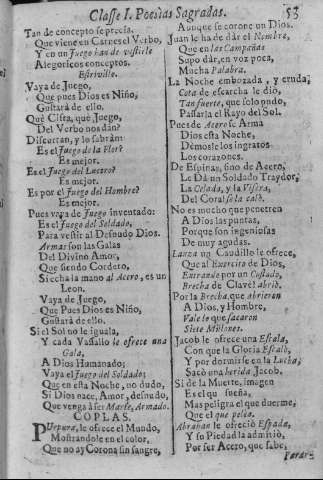 Classe I. Poesias Sagradas. 53
Tan de concepto se precia.
Que viene en Carnes el Verbo,
Y en un Juego han de vestirle
Alegoricos conceptos.
Estrivillo.
Vaya de Juego,
Que pues Dios es Niño,
Gustará de ello.
Què es, què Juego,
Del Verbo nos dàn?
Discurran, y lo sabràn:
Es el Juego de la Flor?
Es mejor.
Es el Juego del Lucero?
Es mejor.
Es por el Juego del Hombre?
Es mejor.
Pues vaya de Juego inventado:
Es el Juego del Soldado,
Para vestir al Desnudo Dios.
Armas son las Galas
Del Divino Amor,
Que siendo Cordero,
Si echa la mano al Acero, es un
Leon.
Vaya de Juego,
Que Pues Dios es Niño,
Gustará de ello.
Si el Sol no le iguala,
Y cada Vassallo le ofrece una
Gala,
A Dios Humanado;
Vaya el Juego del Soldado;
Que en esta Noche, no dudo,
Si Dios nace, Amor, desnudo,
Que venga à ser Marte, Armado.
COPLAS.
PUrpura, le ofrece el Mundo,
Mostrandole en el color,
Que no ay Corona sin sangre,
Aunque se corone un Dios.
Juan le ha de dàr el Nombre,
Que en las Campañas
Supo dàr, en voz poca,
Mucha Palabra.
La Noche embozada, y cruda,
Cota de escarcha le diò,
Tan fuerte, que solo pudo,
Passarla el Rayo del Sol.
Pues de Acero se Arma
Dios esta Noche,
Dèmosle los ingratos
Los corazones.
De Espinas, fino de Acero,
Le Dà un Soldado Traydor,
La Celada, y la Visera,
Del Coral se la calò.
No es mucho que penetren
A Dios las puntas,
Porque son ingeniosas
De muy agudas.
Lanza un Caudillo le ofrece,
Que al Exercito de Dios,
Entrando por un Costado,
Brecha de Clavel abriò.
Por la Brecha que abrieron
A Dios, y Hombre,
Vale le que sacaron
Siete Millones.
Jacob le ofrece una Escala,
Con que la Gloria Escalò,
Y por dormirse en la Lucha,
Sacò una herida Jacob.
Si de la Muerte, imagen
Es el que sueña,
Mas peligra el que duerme,
Que el que pelea.
Abrahan le ofreciò Espada,
Y su Piedad la admitiò,
Por ser Acero, que sabe,
Parar-